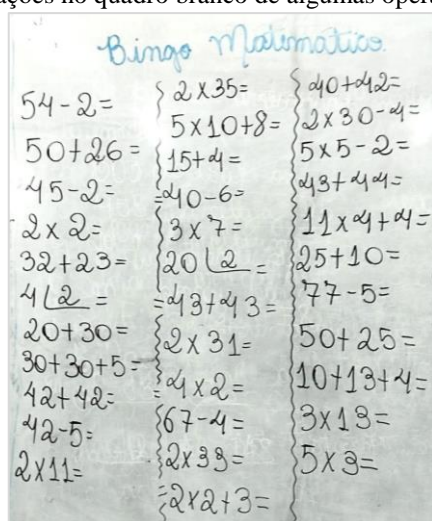 ações no quadro branco de algumas oper
Bingo Matemático.
54-2=
50+26=
45-2=
2x2=
32+23=
4⌊2=
20+30=
30+30+5=
42+42=
42-5=
2x11=
2x35=
5x10+8=
15+4=
40-6=
3x7=
20⌊2=
43+43=
2x31=
4x2=
67-4=
2x33=
2x2+3=
40+42=
2x30-4=
5x5-2=
43+44=
11x4+4=
25+10=
77-5=
50+25=
10+13+4=
3x13=
5x3=